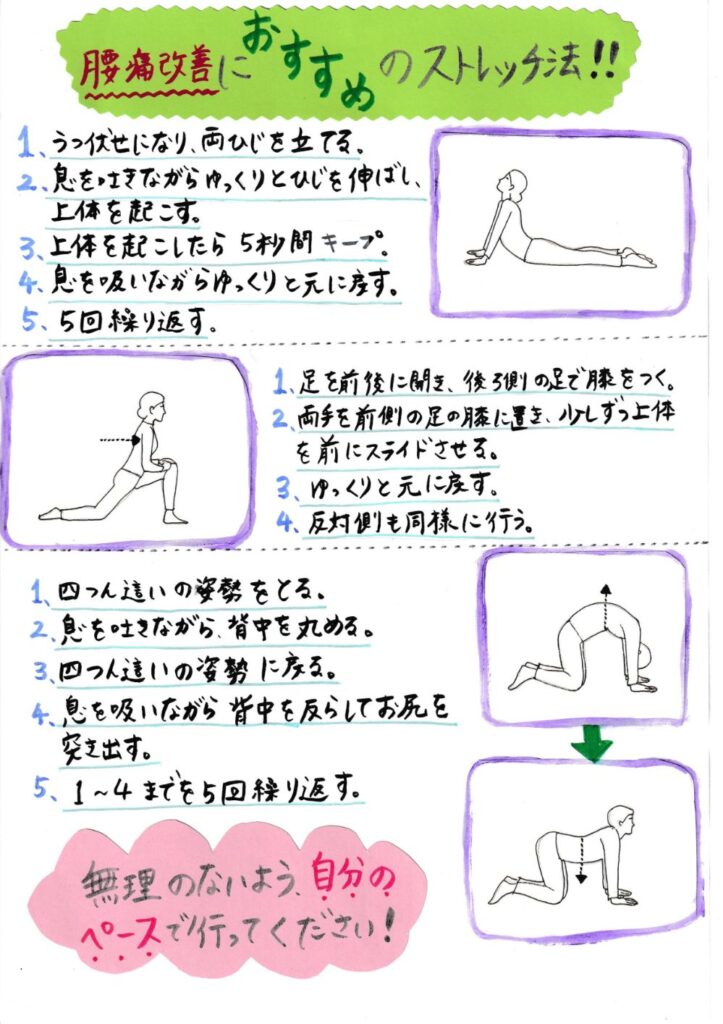 腰痛改善におすすめのストレッチ法!!
1、うつ伏せになり、両ひじを立てる。
2、息を吐きながらゆっくりとひじを伸ばし、
上体を起こす。
3、上体を起こしたら 5秒間キープ。
4、息を吸いながらゆっくりと元に戻す。
5、5回繰り返す。
1、足を前後に開き、後ろ側の足で膝をつく。
2、両手を前側の足の膝に置き、少しずつ上体
を前にスライドさせる。
3、ゆっくりと元に戻す。
4、反対側も同様に行う。
1、四つん這いの姿勢をとる。
2、息を吐きながら、背中を丸める。
3、四つん這いの姿勢に戻る。
4、息を吸いながら背中を反らしてお尻を
突き出す。
5、1~4までを5回繰り返す。
無理のないよう、自分の
ペースで行ってください!